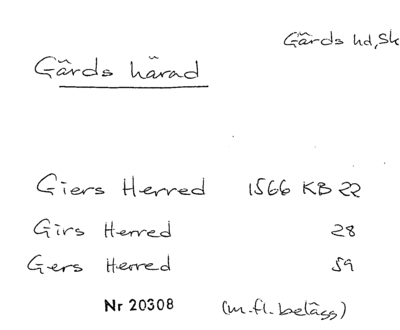 Gärds hd, Sk
Gärds härad
Giers Herred 1566 KB 22
Girs Herred 28
Gers Herred 59
Nr 20308 (m.fl. belägg)